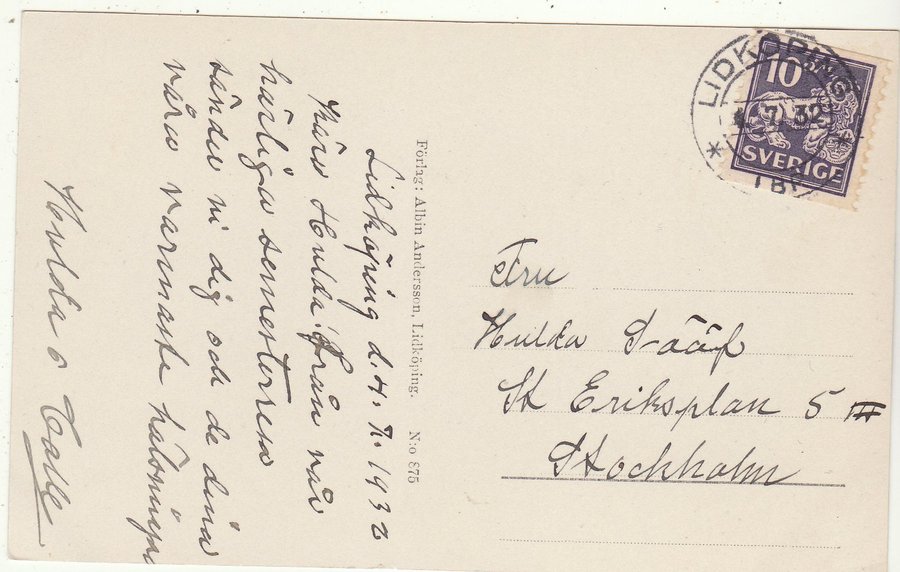 Lidköping d. 4. 7. 1932
Kära Hulda! Från vår
härliga semesterresa
sända vi dig och de dina
våra varmaste hälsningar
Hulda o Calle
Förlag: Albin Andersson, Lidköping. N:o 875
LIDKÖPING
7. 32
10
SVERIGE
Fru
Hulda
St Eriksplan 5 III
Stockholm